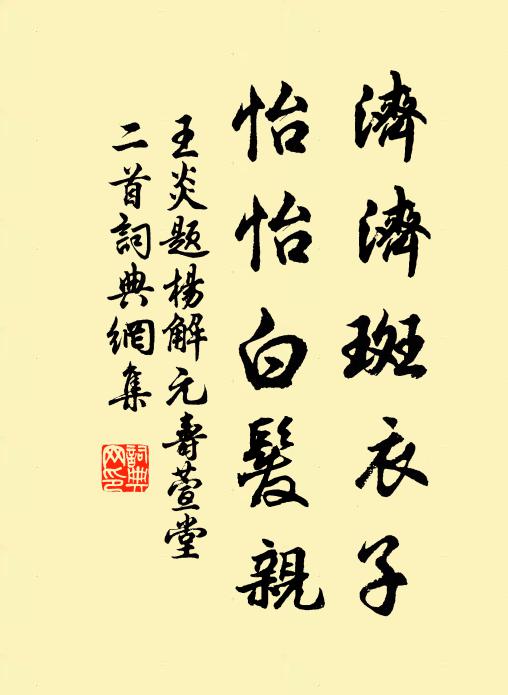 濟濟斑衣子
怡怡白髮親
王炎題楊解元壽萱堂
二首詞典網集
詞典網印